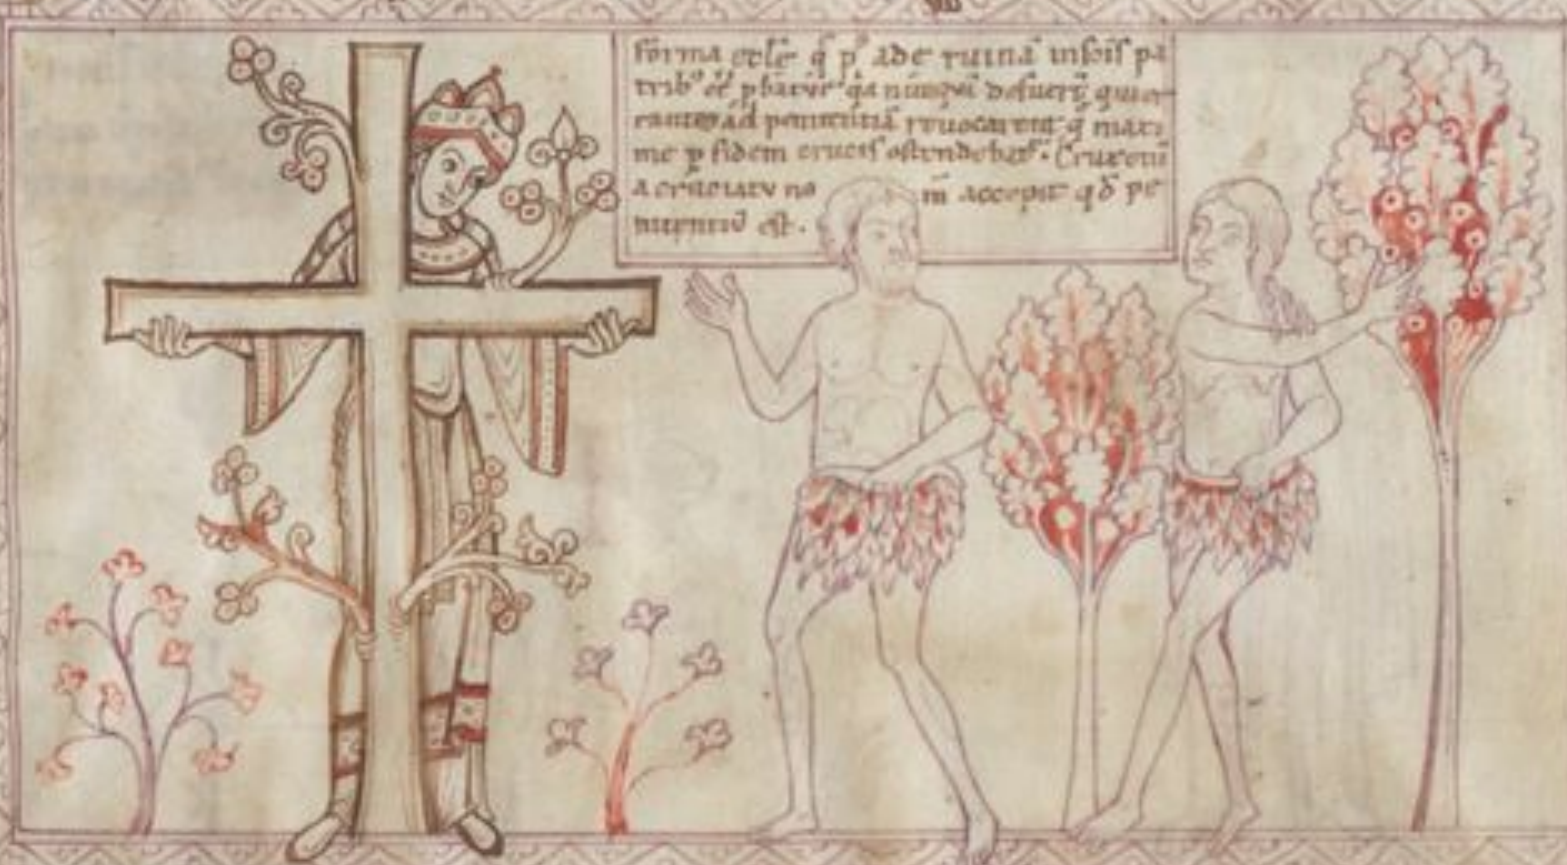 forma eccłe q̄ p' ade ruinā insuis pa
trib' q̄a nunquā defuerū̄t qui er
rantes ad penitentiā revocarent q̄ maxi
me p̱ fidem crucis ostendebat᷒. Crux enī
a cruciatu no m̄ accepit qđ pe
nitentiū est.